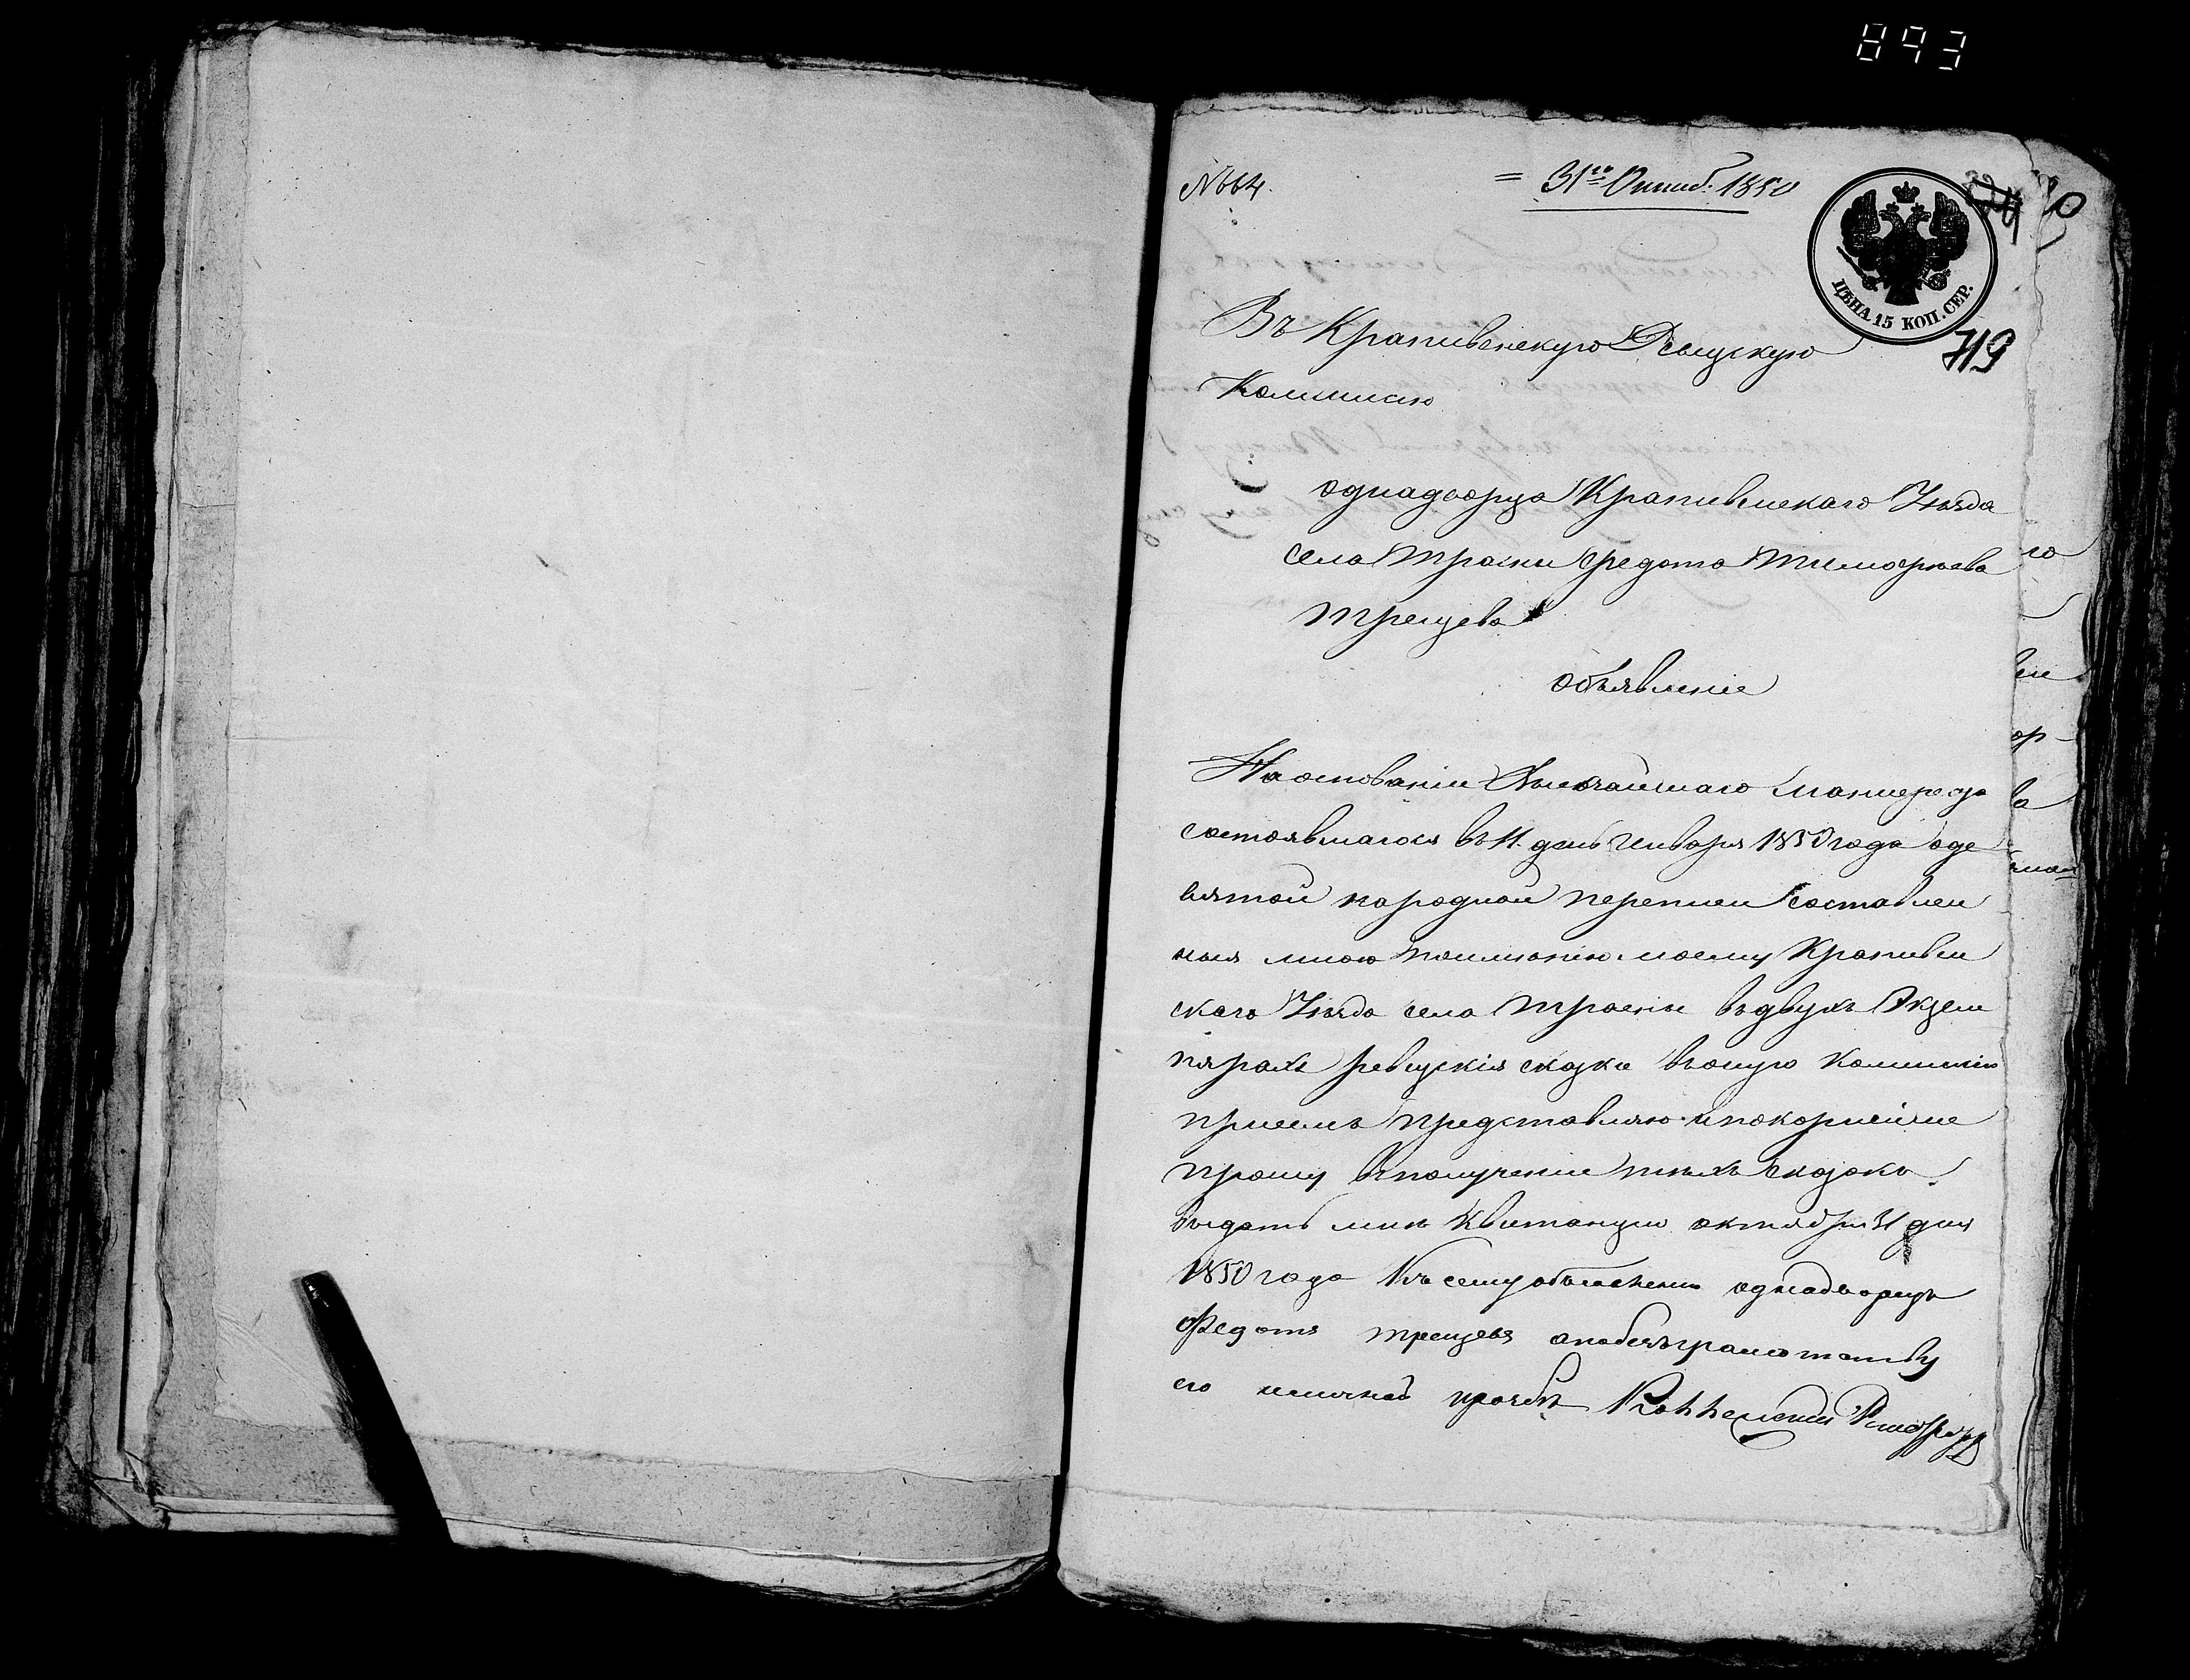 893
№664.
= 31го Октяб: 1850
ЦѢНА 15 КОП. СЕР.
719
Въ Крапивенскую Ревизскую
Комиссию
однадворца Крапивенскаго Уѣзда
села Троена Федота Тимофѣева
Трещева
объявленіе
На основаніи Высочайшаго манифеста
состоявшагося въ 11 день генваря 1850 года оде
вятой народной переписи составлен
ныя мною поимѣнію моему Крапивен
скаго Уѣзда села Троены въ двухъ Экзем
плярахъ ревизскія скаски въ оную Комиссію
присемъ представляю и покорнейше
прошу въ получении тѣхъ сказокъ
выдать мнѣ Квитанцию октября 31 дня
1850 года Къ сему объявлению однадворецъ
Федотъ Трещевъ а по безграмотству
его и личной прозьбѣ